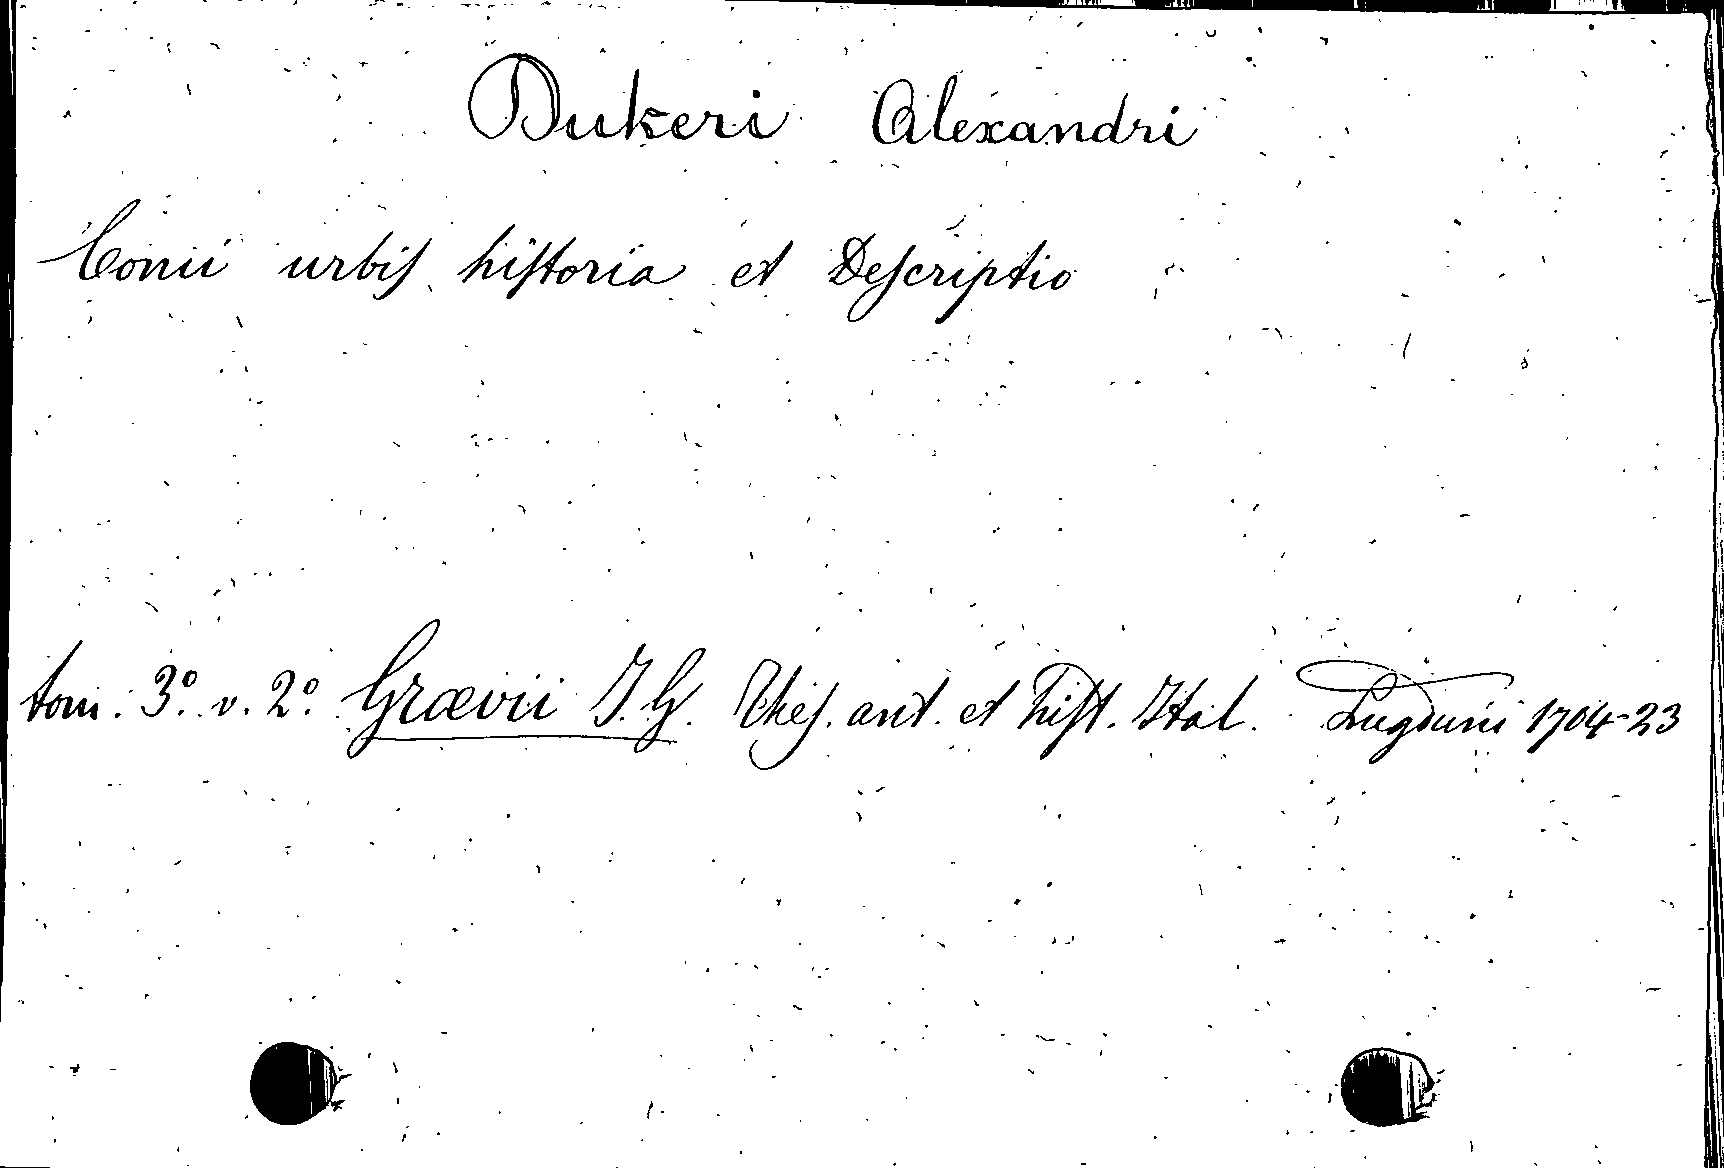 Dukeri Alexandri
Conii urbis historia et Descriptio
tom. 3º. v. 2º. Grævii J. G. Thes. ant. et hist. Ital. Lugduni 1704-23